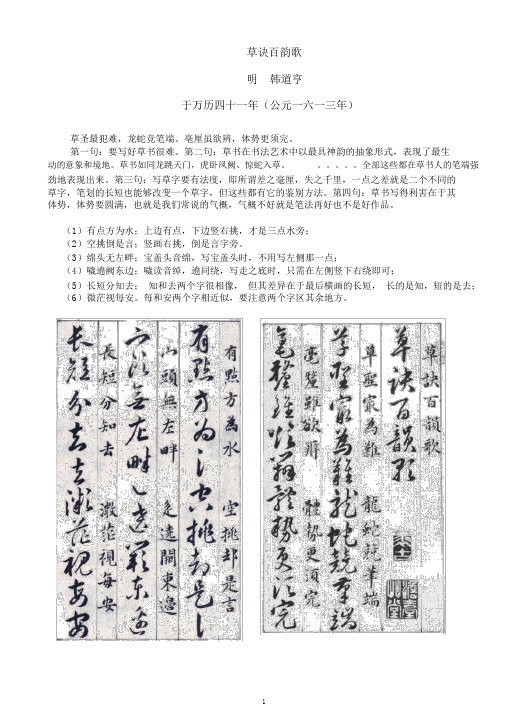 草诀百韵歌
明 韩道亨
于万历四十一年（公元一六一三年）
草圣最犯难，龙蛇竞笔端。毫厘虽欲辨，体势更须完。
第一句：要写好草书很难。第二句：草书在书法艺术中以最具神韵的抽象形式，表现了最生
动的意象和境地。草书如同龙跳天门，虎卧凤阙、惊蛇入草。 。。。。。全部这些都在草书人的笔端强
劲地表现出来。第三句：写草字要有法度，即所谓差之毫厘，失之千里，一点之差就是二个不同的
草字，笔划的长短也能够改变一个草字，但这些都有它的鉴别方法。第四句：草书写得利害在于其
体势，体势要圆满，也就是我们常说的气概，气概不好就是笔法再好也不是好作品。
（1）有点方为水；上边有点，下边竖右挑，才是三点水旁；
（2）空挑倒是言；竖画右挑，倒是言字旁。
（3）绵头无左畔；宝盖头音绵，写宝盖头时，不用写左侧那一点；
（4）辵遶阙东边；辵读音绰，遶同绕，写走之底时，只需在左侧竖下右绕即可；
（5）长短分知去； 知和去两个字很相像， 但其差异在于最后横画的长短， 长的是知，短的是去；
（6）微茫视每安。每和安两个字相近似，要注意两个字区其余地方。
草訣百韻歌
草聖最為難 龍蛇競筆端
毫釐雖欲辨 體勢更須完
有點方為水 空挑却是言
宀頭無左畔 辵遶闕東邊
長短分知去 微茫視每安
1